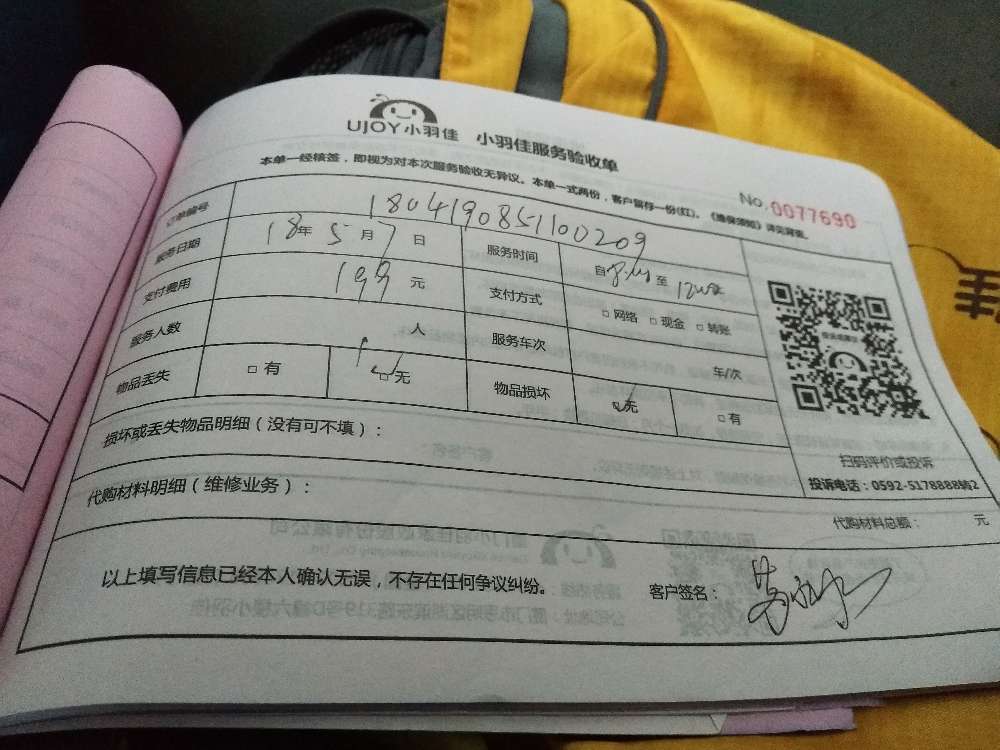 UJOY小羽佳 小羽佳服务验收单
本单一经核签，即视为对本次服务验收无异议。本单一式两份，客户留存一份(红)。《维保须知》详见背面。
No.0077690
订单编号 1804190851100209
服务日期 18年5月7日 服务时间 自 至
支付费用 199元 支付方式 □网络 □现金 □转账
服务人数 人 服务车次 车/次
物品丢失 □有 □无 物品损坏 □无 □有
损坏或丢失物品明细（没有可不填）：
扫码评价或投诉
投诉电话：0592-5178888转2
代购材料明细（维修业务）：
代购材料总额： 元
以上填写信息已经本人确认无误，不存在任何争议纠纷。 客户签名：